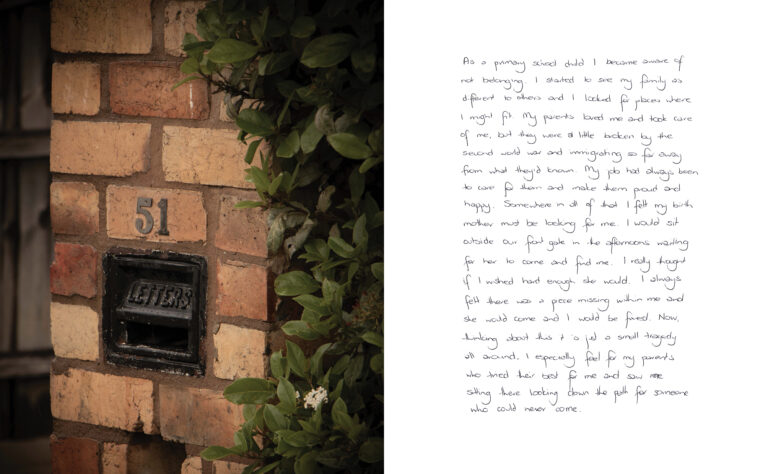 51
LETTERS
As a primary school child I became aware of
not belonging. I started to see my family as
different to others and I looked for places where
I might fit. My parents loved me and took care
of me, but they were a little broken by the
second world war and immigrating so far away
from what they'd known. My job had always been
to care for them and make them proud and
happy. Somewhere in all of that I felt my birth
mother must be looking for me. I would sit
outside our front gate in the afternoons waiting
for her to come and find me. I really thought
if I wished hard enough she would. I always
felt there was a piece missing within me and
she would come and I would be fixed. Now,
thinking about this it is just a small tragedy
all around. I especially feel for my parents
who tried their best for me and saw me
sitting there looking down the path for someone
who could never come.